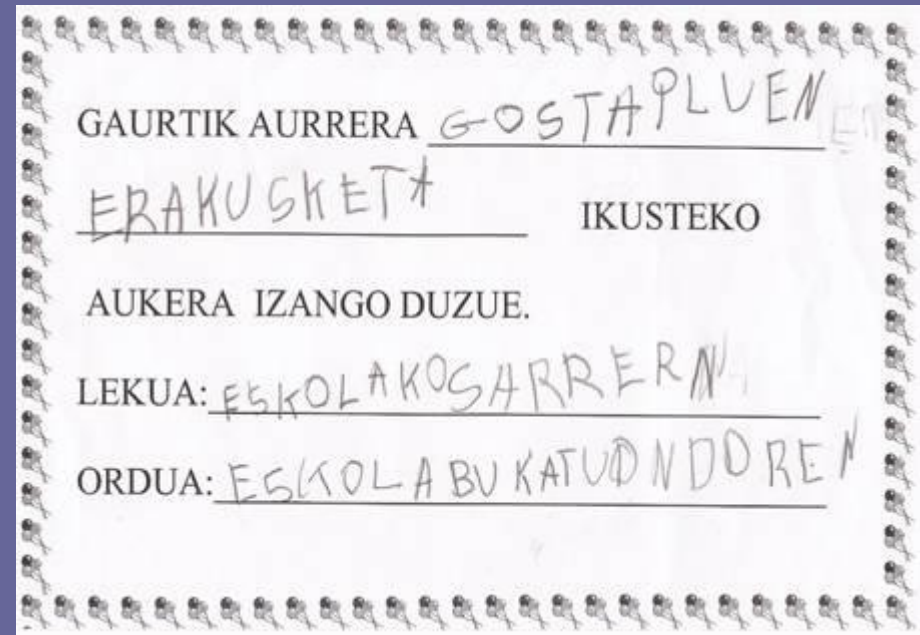 GAURTIK AURRERA GOSTAPLUEN
ERAKUSKETA IKUSTEKO
AUKERA IZANGO DUZUE.
LEKUA: ESKOLAKOSARRERN
ORDUA: ESKOLABUKATUONDOREN